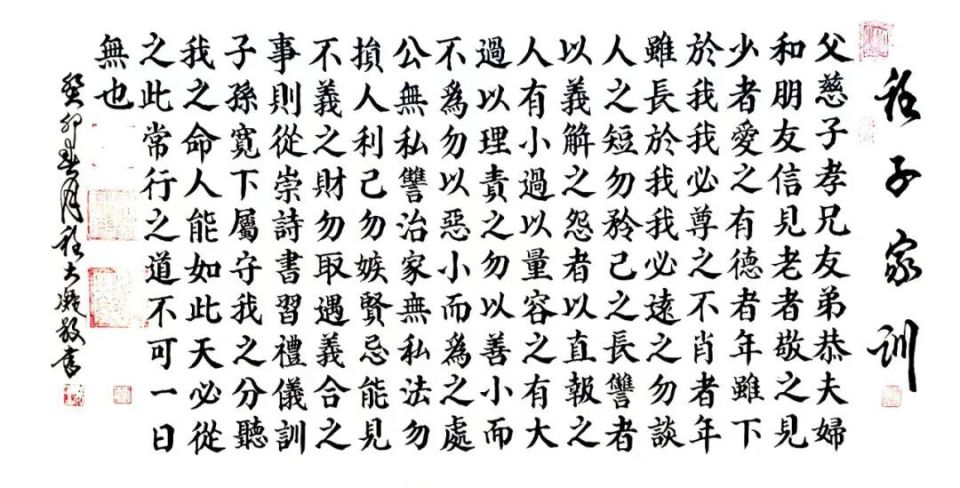 程子家训
父慈子孝兄友弟恭夫婦
和朋友信見老者敬之見
少者愛之有德者年雖下
於我我必尊之不肖者年
雖長於我我必遠之勿談
人之短勿矜己之長讐者
以義解之怨者以直報之
人有小過以量容之有大
過以理責之勿以善小而
不爲勿以惡小而爲之處
公無私讐治家無私法勿
損人利己勿嫉賢忌能見
不義之財勿取遇義合之
事則從崇詩書習禮儀訓
子孫寬下屬守我之分聽
我之命人能如此天必從
之此常行之道不可一日
無也
癸卯春月程大凝敬書